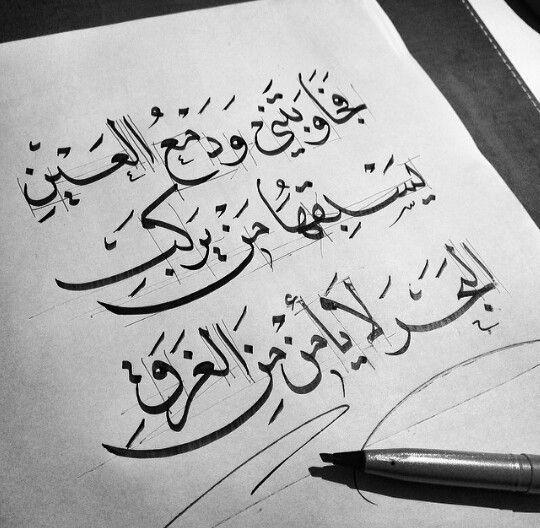 فَجَاوَبَتْنِي وَدَمْعُ العَيْنِ
يَسْبِقُهَا مَنْ يَركَبِ
البَحْرَ لَا يَأمَنْ مِنَ الغَرَقِ